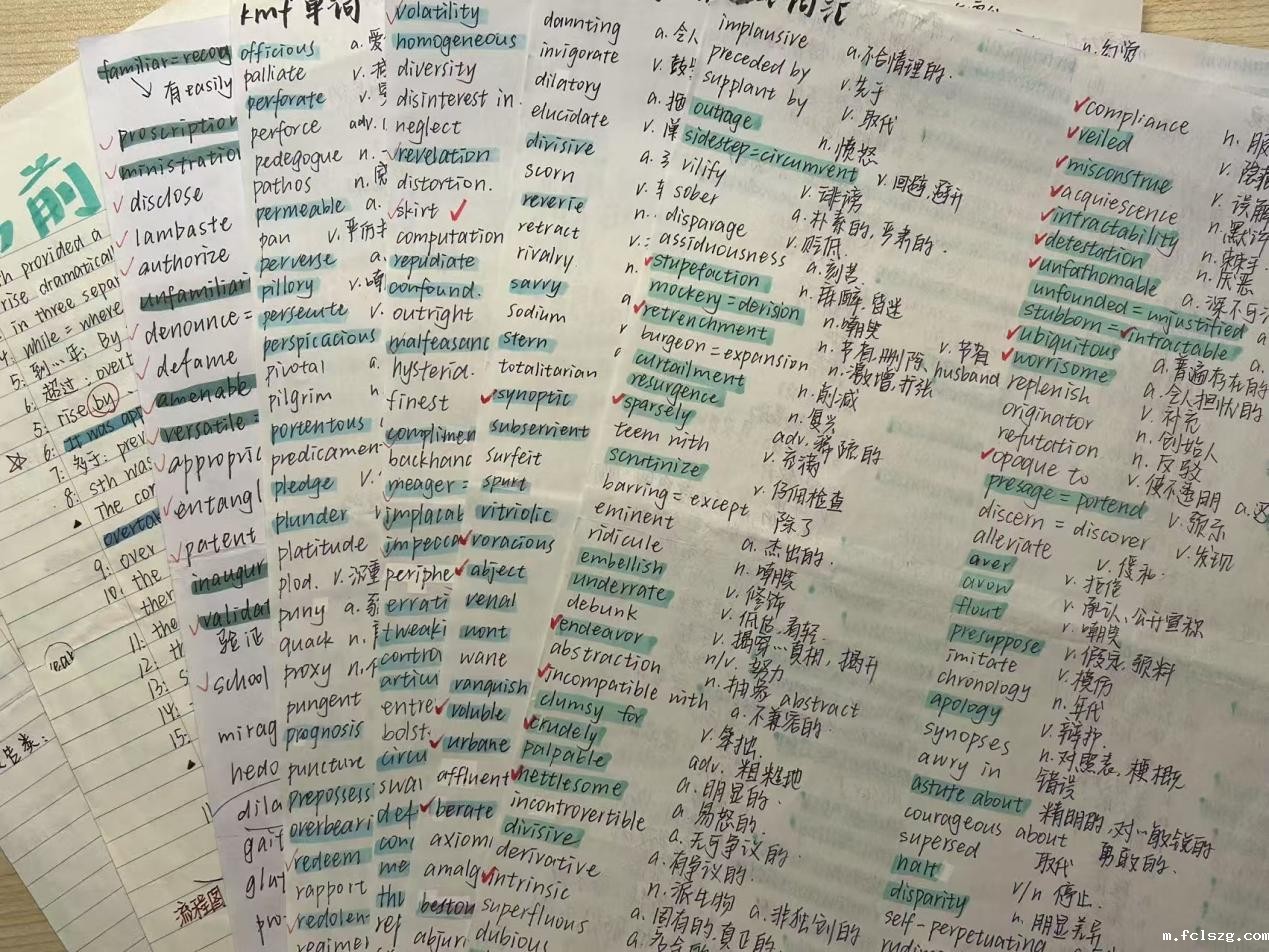 前
th provided a
rise dramatical
in three separ
while = where
5: 到…年: By
6: 超过: overt
5: rise by
6: It was app
7: 多于: prev
8: sth was
The cor
overta
9: over
10: the
ther
11: the
12: th
13: s
14:
15:
流程图
familiar = recog
→ 有 easily
proscription
ministration
disclose
lambaste
authorize
unfamiliar
denounce =
defame
amenable
versatile =
appropric
entangl
patent
inaugur
validat
验证
school
mirag
hedo
dila
gait
glut
pro
kmf 单词
officious a. 爱
palliate v.
perforate v.
perforce adv.
pedegogue n.
pathos n.
permeable a.
pan v. 平
perverse a.
pillory v. 嘲
persecute v.
perspicacious
pivotal a.
pilgrim n.
portentous
predicamen
pledge v.
plunder v
platitude
plod. v. 沉重
puny a.
quack n.
proxy n.
pungent
prognosis
puncture
prepossessi
overbeari
redeem
rapport
redolen
regimer
volatility
homogeneous
diversity
disinterest in.
neglect
revelation
distortion.
skirt
computation
repudiate
confound.
outright
malfeasanc
hysteria.
finest
complimen
backhanc
meager =
implacat
impecca
periphe
errati
tweaki
contra
articu
entre
bolst
circu
swa
def
con
me
thi
ref
daunting a. 令人
invigorate v. 鼓
dilatory a.
elucidate v.
divisive a.
scorn v.
reverie n.
retract v.
rivalry n.
savvy a
sodium
stern
totalitarian
synoptic
subservient
surfeit
spurt
vitriolic
voracious
abject
venal
wont
wane
vanquish
voluble
urbane
affluent
berate
axiom
amalg
bestow
abjur
词汇
implausive a. 不合情理的.
preceded by v. 先于
supplant by v. 取代
outrage n. 愤怒
sidestep = circumvent v. 回避, 避开
vilify v. 诽谤
sober a. 朴素的, 严肃的.
disparage v. 贬低.
assiduousness a. 刻苦
stupefaction n. 麻醉, 昏迷
mockery = derision n. 嘲笑
retrenchment n. 节省, 删除, v. 节省 husband
burgeon = expansion n. 激增, 扩张
curtailment n. 削减
resurgence n. 复兴
sparsely adv. 稀疏的
teem with v. 充满
scrutinize v. 仔细检查
barring = except 除了
eminent a. 杰出的.
ridicule n. 嘲笑
embellish v. 修饰
underrate v. 低估, 看轻
debunk v. 揭穿…真相, 揭开
endeavor n/v. 努力
abstraction n. 抽象 abstract
incompatible with a. 不兼容的.
clumsy for v. 笨拙.
crudely adv. 粗糙地
palpable a. 明显的.
nettlesome a. 易怒的.
incontrovertible a. 无可争议的
divisive a. 有争议的.
derivative n. 派生物 a. 非独创的
intrinsic a. 固有的, 真正的.
superfluous a. 多余的
dubious
n. 幻
compliance n. 服
veiled v. 隐
misconstrue v. 误解
acquiescence n. 默许
intractability n. 棘手.
detestation n. 厌恶
unfathomable a. 深不可
unfounded = unjustified a
stubborn = intractable a.
ubiquitous a. 普遍存在的
worrisome a. 令人担忧的
replenish v. 补充
originator n. 创始人
refutation n. 反驳
opaque to v. 使不透明 a. 不
presage = portend v. 预示
discern = discover v. 发现
alleviate v. 缓和.
aver v. 拒绝
avow v. 承认, 公开宣称
flout v. 嘲笑
presuppose v. 假定, 预料
imitate v. 模仿
chronology n. 年代
apology v. 辩护.
synopses n. 对照表, 梗概
awry in 错误
astute about 精明的, 对…敏锐的
courageous about 勇敢的.
supersed 取代
halt v/n 停止.
disparity n. 明显差异
self-perpetuating
m.fclszg.com